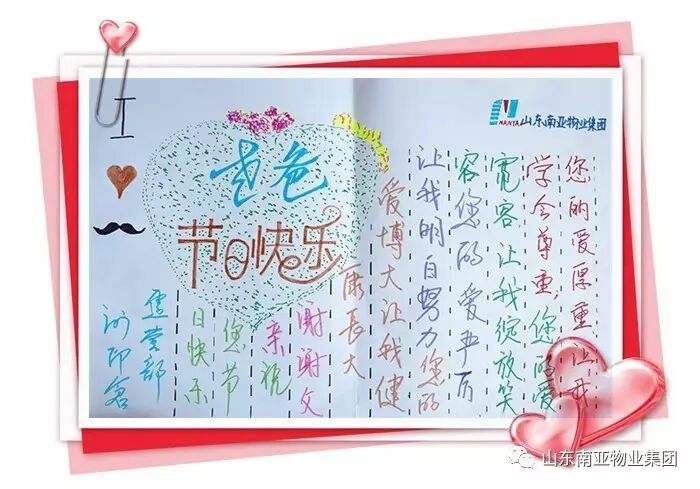 I
老爸
节日快乐
NANYA 山东南亚物业集团
您的爱厚重让我
学会尊重,您的爱
宽容让我绽放笑
容您的爱严厉
让我明白努力您的
爱博大让我健
康長大
谢谢父
亲祝
您节
日快乐
营部
山东南亚物业集团